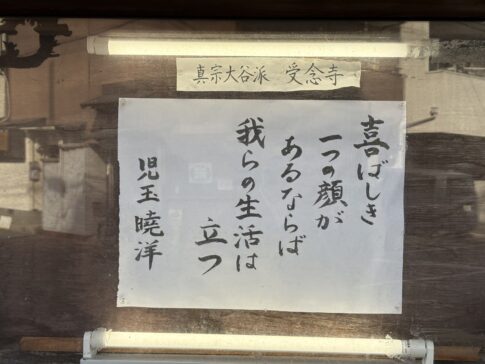 真宗大谷派 受念寺
喜ばしき
一つの顔が
あるならば
我らの生活は
立つ
児玉暁洋